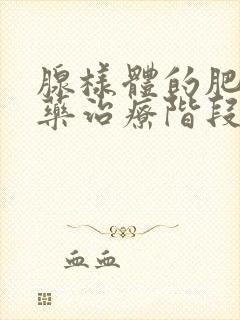 腺樣體的肥
藥治療階段
血血